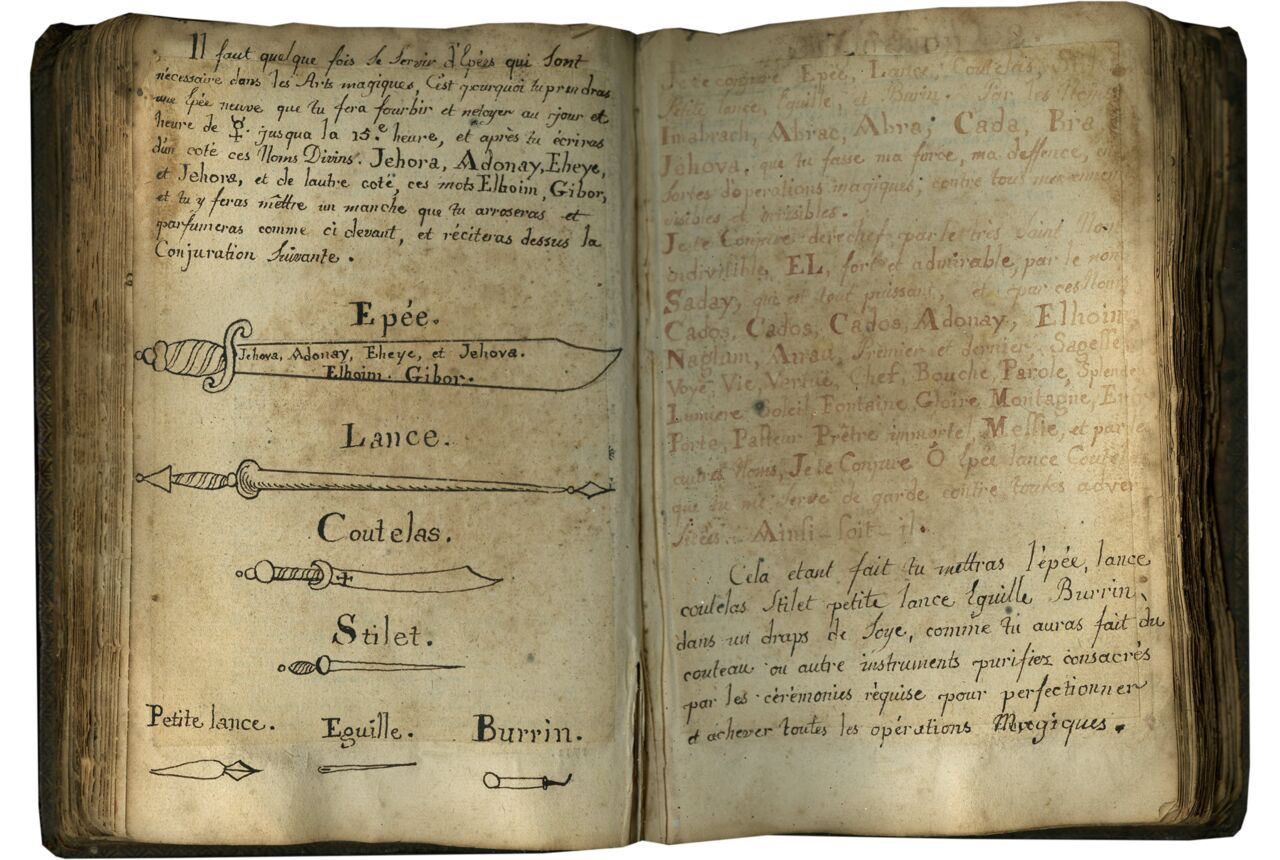 Il faut quelque fois se servir d'Epées qui sont
nécessaire dans les Arts magiques, C'est pourquoi tu prendras
une Epée neuve que tu fera fourbir et netoyer au jour et
heure de ☿. jusqua la 15.e heure, et après tu écriras
d'un coté ces Noms Divins. Jehora, Adonay, Eheye,
et Jehora, et de lautre coté, ces mots Elhoim, Gibor,
et tu y feras mêttre un manche que tu arroseras et
parfumeras comme ci devant, et réciteras dessus la
Conjuration Suivante.
Epée.
Jehova, Adonay, Eheye, et Jehova.
Elhoim. Gibor.
Lance.
Coutelas.
Stilet.
Petite lance. Eguille. Burrin.
Je te conjure Epée, Lance, Coutelas,
Petite lance, Eguille, et Burin. Par les
Imabrach, Abrac, Abra, Cada, Bra
Jehova, que tu fasse ma force, ma deffence,
sortes d'operations magiques, contre tous mes
visibles et invisibles.
Je te Conjure derechef par le très saint Nom
indivisible, EL, fort et admirable, par le nom
Saday, qui est tout puissant, et par ces Noms
Cados, Cados, Cados, Adonay, Elhoim,
Premier et dernier. Sagesse
Voye, Vie, Vertue, Chef, Bouche, Parole, Splende
Lumiere Soleil, Fontaine, Gloire Montagne,
Porte, Pasteur Prêtre immortel, Messie, et par le
autres Noms, Je te Conjure O Epée lance Coutel
que tu me serve de garde contre toutes adver
sités. Ainsi-soit-il.
Cela etant fait tu mettras l'épée, lance
coutelas Stilet petite lance Eguille Burrin,
dans un draps de Soye, comme tu auras fait du
couteau ou autre instruments purifiez consacrés
par les cérémonies réquise pour perfectionner
et achever toutes les opérations Magiques.